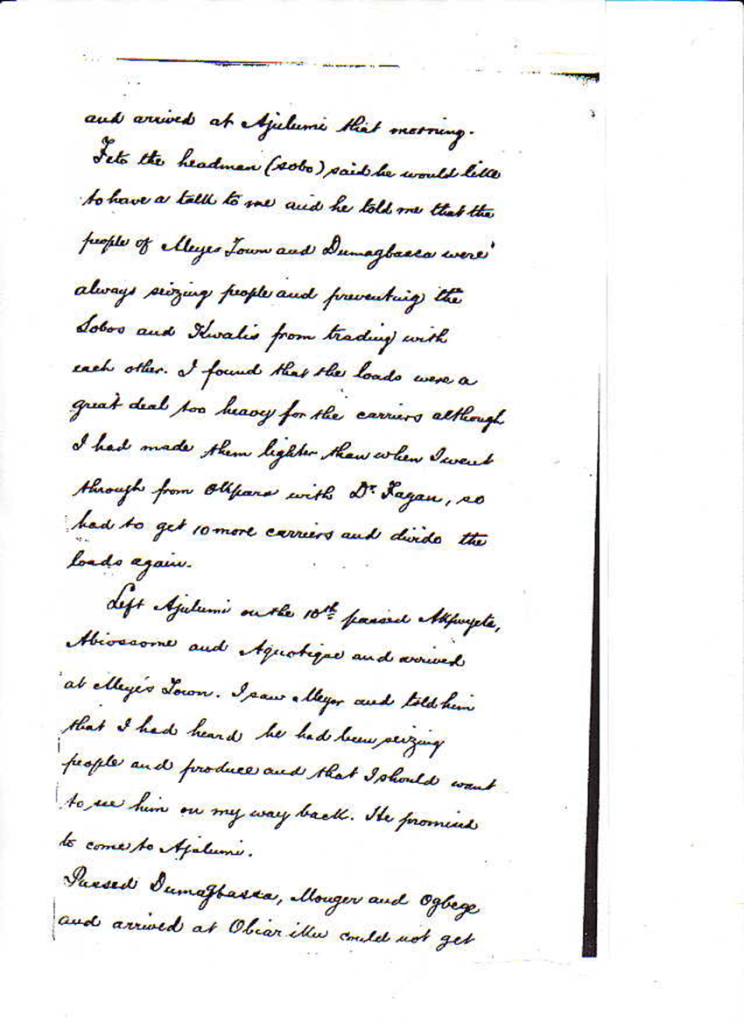 and arrived at Ajulumi that morning.
Feto the headman (Sobo) said he would like
to have a talk to me and he told me that the
people of Meyes Town and Dumagbassa were
always seizing people and preventing the
Sobos and Kwalis from trading with
each other. I found that the loads were a
great deal too heavy for the carriers although
I had made them lighter than when I went
through from Okpara with Dr. Fagan, so
had to get 10 more carriers and divide the
loads again.
Left Ajulumi on the 10th passed
Abiossome and and arrived
at Meyes Town. I saw Meyer and told him
that I had heard he had been seizing
people and produce and that I should want
to see him on my way back. He promised
to come to Ajalumi.
Passed Dumagbassa, Mouger and Ogbege
and arrived at could not get